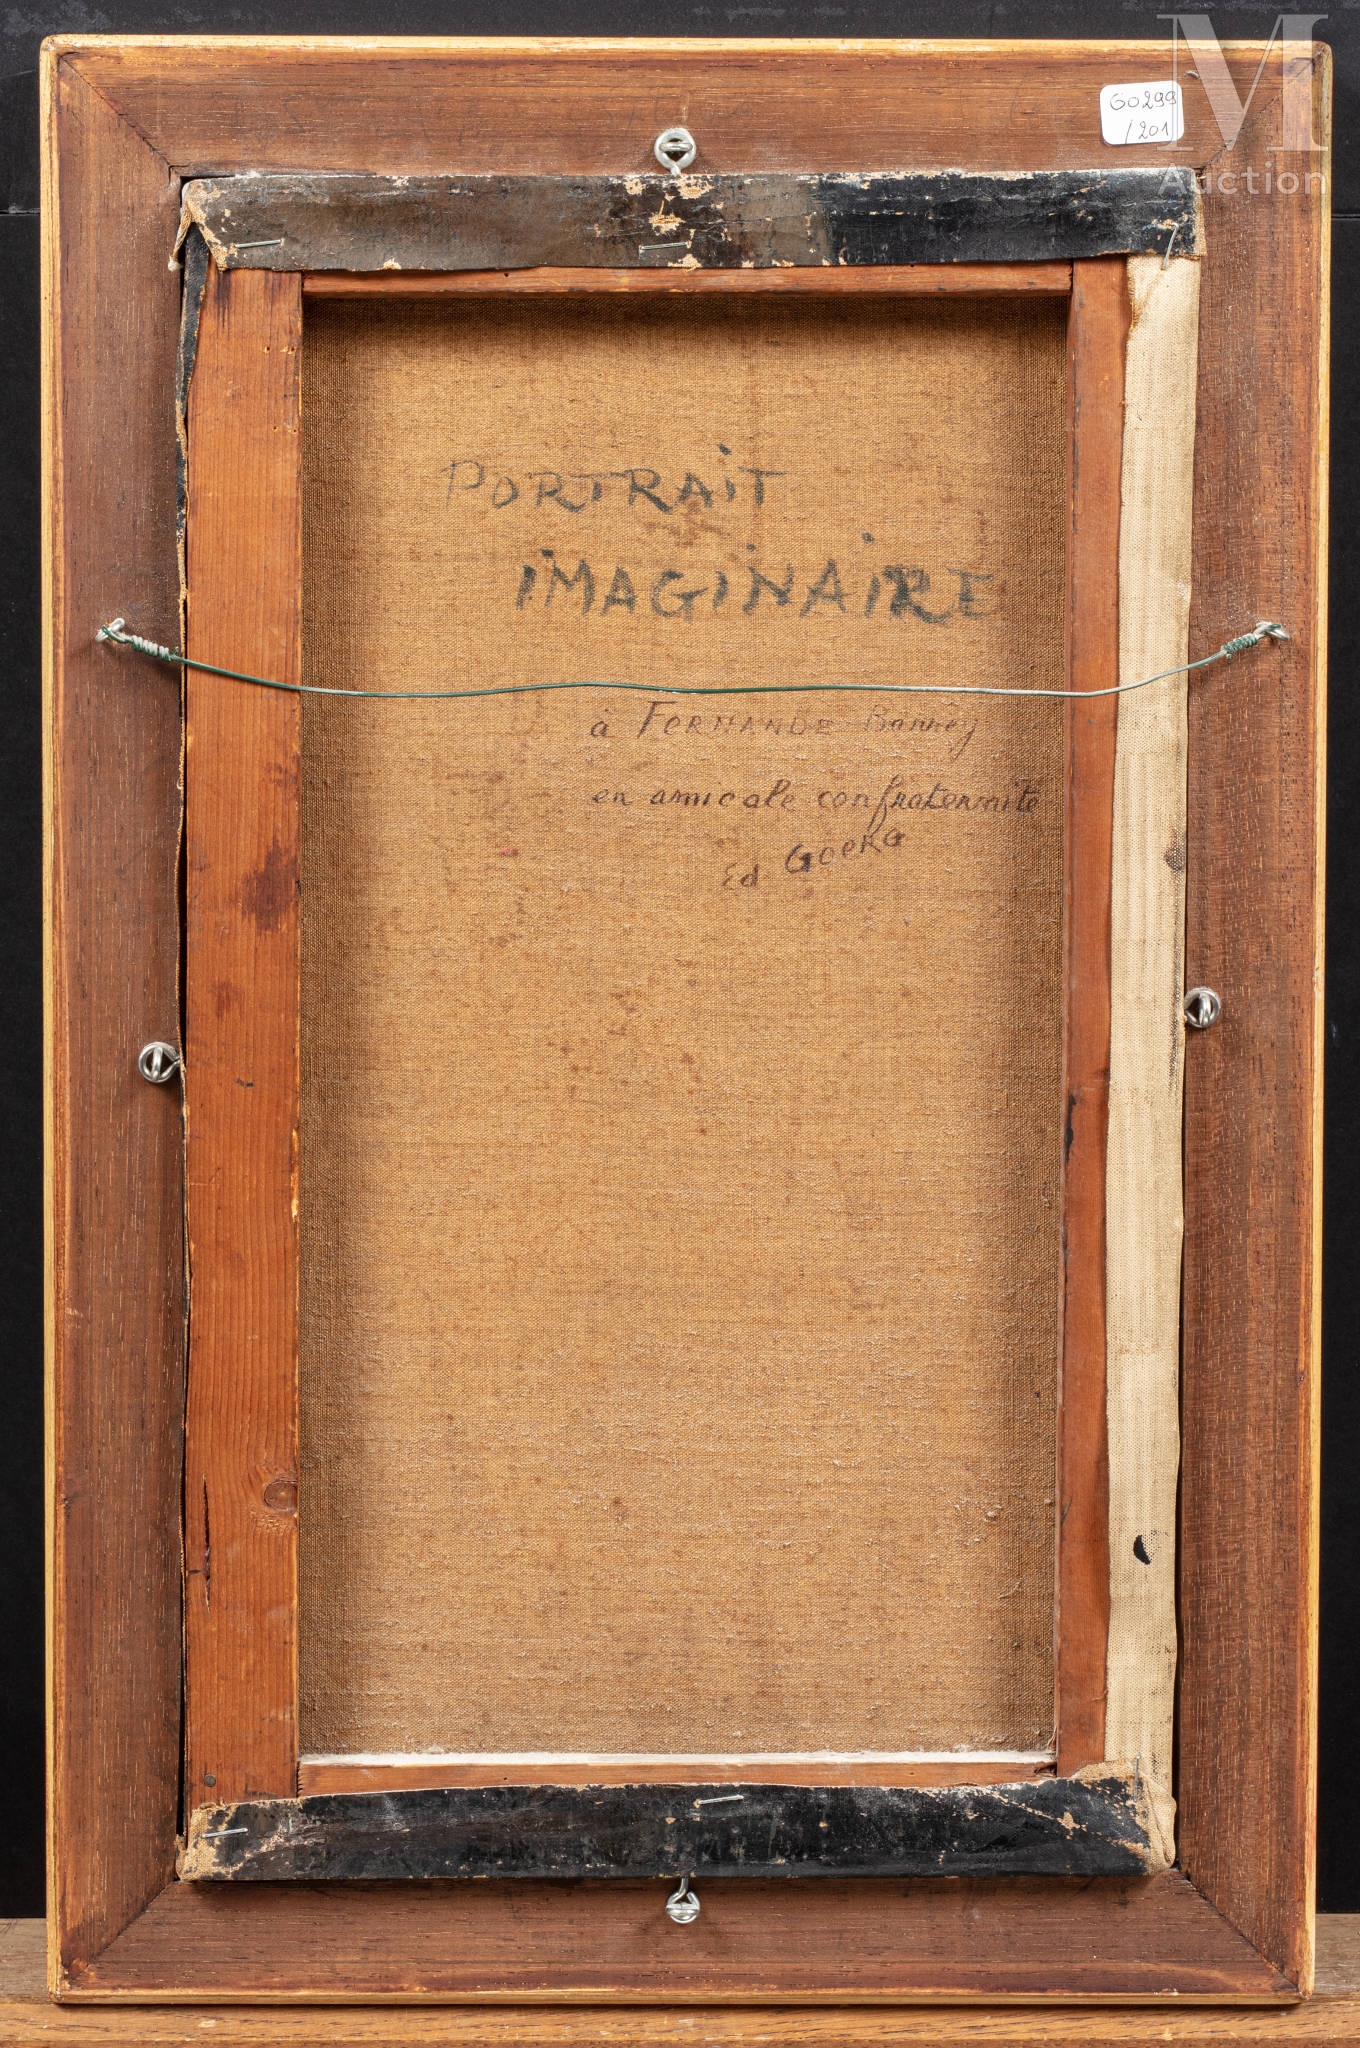 M
Auction
60299
/201
PORTRAiT
iMAGiNAiRE
à FERNANDE Banney
en amicale confraternite
Ed GoeRG